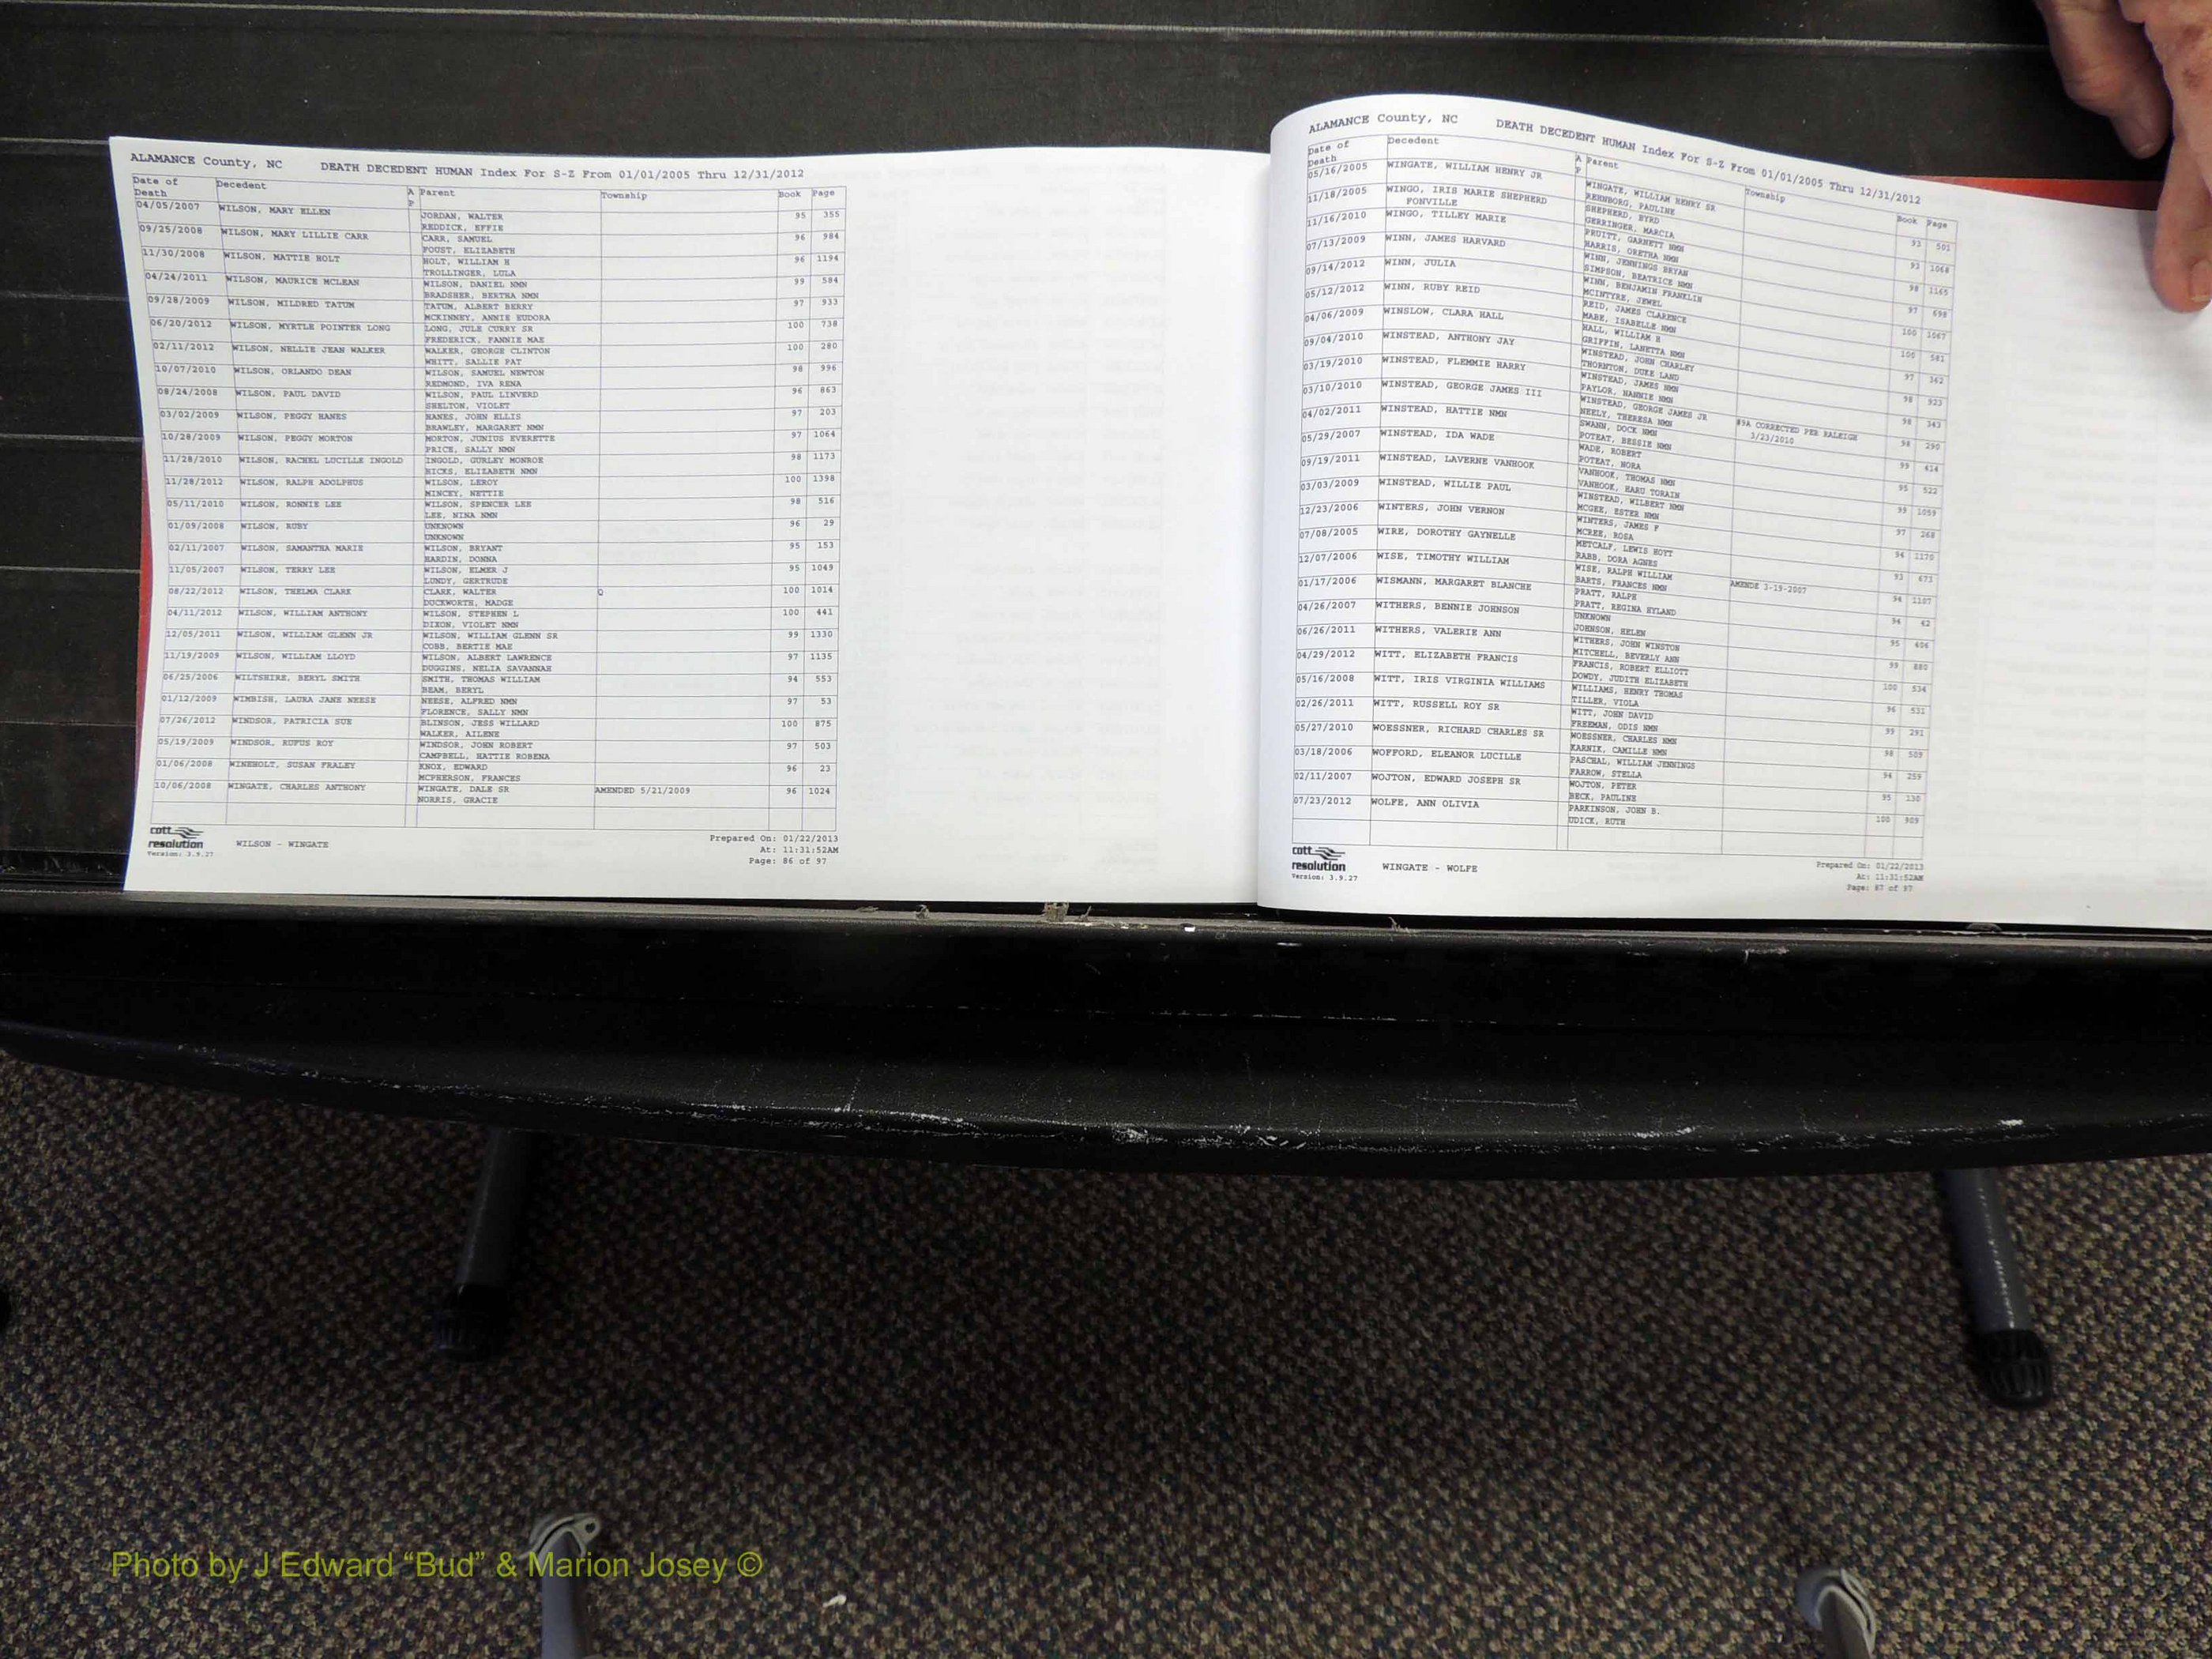 ALAMANCE County, NC DEATH DECEDENT HUMAN Index For S-Z From 01/01/2005 Thru 12/31/2012
Date of Death Decedent A P Parent Township Book Page
04/05/2007 WILSON, MARY ELLEN JORDAN, WALTER 95 355
REDDICK, EFFIE
09/25/2008 WILSON, MARY LILLIE CARR CARR, SAMUEL 96 984
FOUST, ELIZABETH
11/30/2008 WILSON, MATTIE HOLT HOLT, WILLIAM H 96 1194
TROLLINGER, LULA
04/24/2011 WILSON, MAURICE MCLEAN WILSON, DANIEL NMN 99 584
BRADSHER, BERTHA NMN
09/28/2009 WILSON, MILDRED TATUM TATUM, ALBERT BERRY 97 933
MCKINNEY, ANNIE EUDORA
06/20/2012 WILSON, MYRTLE POINTER LONG LONG, JULE CURRY SR 100 738
FREDERICK, FANNIE MAE
02/11/2012 WILSON, NELLIE JEAN WALKER WALKER, GEORGE CLINTON 100 280
WHITT, SALLIE PAT
10/07/2010 WILSON, ORLANDO DEAN WILSON, SAMUEL NEWTON 98 996
REDMOND, IVA RENA
08/24/2008 WILSON, PAUL DAVID WILSON, PAUL LINVERD 96 863
SHELTON, VIOLET
03/02/2009 WILSON, PEGGY HANES HANES, JOHN ELLIS 97 203
BRAWLEY, MARGARET NMN
10/28/2009 WILSON, PEGGY MORTON MORTON, JUNIUS EVERETTE 97 1064
PRICE, SALLY NMN
11/28/2010 WILSON, RACHEL LUCILLE INGOLD INGOLD, GURLEY MONROE 98 1173
HICKS, ELIZABETH NMN
11/28/2012 WILSON, RALPH ADOLPHUS WILSON, LEROY 100 1398
MINCEY, NETTIE
05/11/2010 WILSON, RONNIE LEE WILSON, SPENCER LEE 98 516
LEE, NINA NMN
01/09/2008 WILSON, RUBY UNKNOWN 96 29
UNKNOWN
02/11/2007 WILSON, SAMANTHA MARIE WILSON, BRYANT 95 153
HARDIN, DONNA
11/05/2007 WILSON, TERRY LEE WILSON, ELMER J 95 1049
LUNDY, GERTRUDE
08/22/2012 WILSON, THELMA CLARK CLARK, WALTER Q 100 1014
DUCKWORTH, MADGE
04/11/2012 WILSON, WILLIAM ANTHONY WILSON, STEPHEN L 100 441
DIXON, VIOLET NMN
12/05/2011 WILSON, WILLIAM GLENN JR WILSON, WILLIAM GLENN SR 99 1330
COBB, BERTIE MAE
11/19/2009 WILSON, WILLIAM LLOYD WILSON, ALBERT LAWRENCE 97 1135
DUGGINS, NELIA SAVANNAH
06/25/2006 WILTSHIRE, BERYL SMITH SMITH, THOMAS WILLIAM 94 553
BEAM, BERYL
01/12/2009 WIMBISH, LAURA JANE NEESE NEESE, ALFRED NMN 97 53
FLORENCE, SALLY NMN
07/26/2012 WINDSOR, PATRICIA SUE BLINSON, JESS WILLARD 100 875
WALKER, AILENE
05/19/2009 WINDSOR, RUFUS ROY WINDSOR, JOHN ROBERT 97 503
CAMPBELL, HATTIE ROBENA
01/06/2008 WINEHOLT, SUSAN FRALEY KNOX, EDWARD 96 23
MCPHERSON, FRANCES
10/06/2008 WINGATE, CHARLES ANTHONY WINGATE, DALE SR AMENDED 5/21/2009 96 1024
NORRIS, GRACIE
cott resolution Version: 3.9.27
WILSON - WINGATE
Prepared On: 01/22/2013
At: 11:31:52AM
Page: 86 of 97
ALAMANCE County, NC DEATH DECEDENT HUMAN Index For S-Z From 01/01/2005 Thru 12/31/2012
Date of Death Decedent A P Parent Township Book Page
05/16/2005 WINGATE, WILLIAM HENRY JR WINGATE, WILLIAM HENRY SR 93 501
REHNBORG, PAULINE
11/18/2005 WINGO, IRIS MARIE SHEPHERD FONVILLE SHEPHERD, BYRD 93 1068
GERRINGER, MARCIA
11/16/2010 WINGO, TILLEY MARIE PRUITT, GARNETT NMN 98 1165
HARRIS, ORETHA NMN
07/13/2009 WINN, JAMES HARVARD WINN, JENNINGS BRYAN 97 698
SIMPSON, BEATRICE NMN
09/14/2012 WINN, JULIA WINN, BENJAMIN FRANKLIN 100 1067
MCINTYRE, JEWEL
05/12/2012 WINN, RUBY REID REID, JAMES CLARENCE 100 581
MABE, ISABELLE NMN
04/06/2009 WINSLOW, CLARA HALL HALL, WILLIAM H 97 362
GRIFFIN, LANETTA NMN
09/04/2010 WINSTEAD, ANTHONY JAY WINSTEAD, JOHN CHARLEY 98 923
THORNTON, DUKE LAND
03/19/2010 WINSTEAD, FLEMMIE HARRY WINSTEAD, JAMES NMN 98 343
PAYLOR, NANNIE NMN
03/10/2010 WINSTEAD, GEORGE JAMES III WINSTEAD, GEORGE JAMES JR #9A CORRECTED PER RALEIGH 3/23/2010 98 290
NEELY, THERESA NMN
04/02/2011 WINSTEAD, HATTIE NMN SWANN, DOCK NMN 99 414
POTEAT, BESSIE NMN
05/29/2007 WINSTEAD, IDA WADE WADE, ROBERT 95 522
POTEAT, NORA
09/19/2011 WINSTEAD, LAVERNE VANHOOK VANHOOK, THOMAS NMN 99 1059
VANHOOK, HARU TORAIN
03/03/2009 WINSTEAD, WILLIE PAUL WINSTEAD, WILBERT NMN 97 268
MCGEE, ESTER NMN
12/23/2006 WINTERS, JOHN VERNON WINTERS, JAMES F 94 1170
MCREE, ROSA
07/08/2005 WIRE, DOROTHY GAYNELLE METCALF, LEWIS HOYT 93 673
RABB, DORA AGNES
12/07/2006 WISE, TIMOTHY WILLIAM WISE, RALPH WILLIAM AMENDE 3-19-2007 94 1107
BARTS, FRANCES NMN
01/17/2006 WISMANN, MARGARET BLANCHE PRATT, RALPH 94 62
PRATT, REGINA HYLAND
04/26/2007 WITHERS, BENNIE JOHNSON UNKNOWN 95 406
JOHNSON, HELEN
06/26/2011 WITHERS, VALERIE ANN WITHERS, JOHN WINSTON 99 880
MITCHELL, BEVERLY ANN
04/29/2012 WITT, ELIZABETH FRANCIS FRANCIS, ROBERT ELLIOTT 100 534
DOWDY, JUDITH ELIZABETH
05/16/2008 WITT, IRIS VIRGINIA WILLIAMS WILLIAMS, HENRY THOMAS 96 531
TILLER, VIOLA
02/26/2011 WITT, RUSSELL ROY SR WITT, JOHN DAVID 99 291
FREEMAN, ODIS NMN
05/27/2010 WOESSNER, RICHARD CHARLES SR WOESSNER, CHARLES NMN 98 509
KARNIK, CAMILLE NMN
03/18/2006 WOFFORD, ELEANOR LUCILLE PASCHAL, WILLIAM JENNINGS 94 259
FARROW, STELLA
02/11/2007 WOJTON, EDWARD JOSEPH SR WOJTON, PETER 95 130
BECK, PAULINE
07/23/2012 WOLFE, ANN OLIVIA PARKINSON, JOHN B. 100 909
UDICK, RUTH
cott resolution Version: 3.9.27
WINGATE - WOLFE
Prepared On: 01/22/2013
At: 11:31:52AM
Page: 87 of 97
Photo by J Edward “Bud” & Marion Josey ©